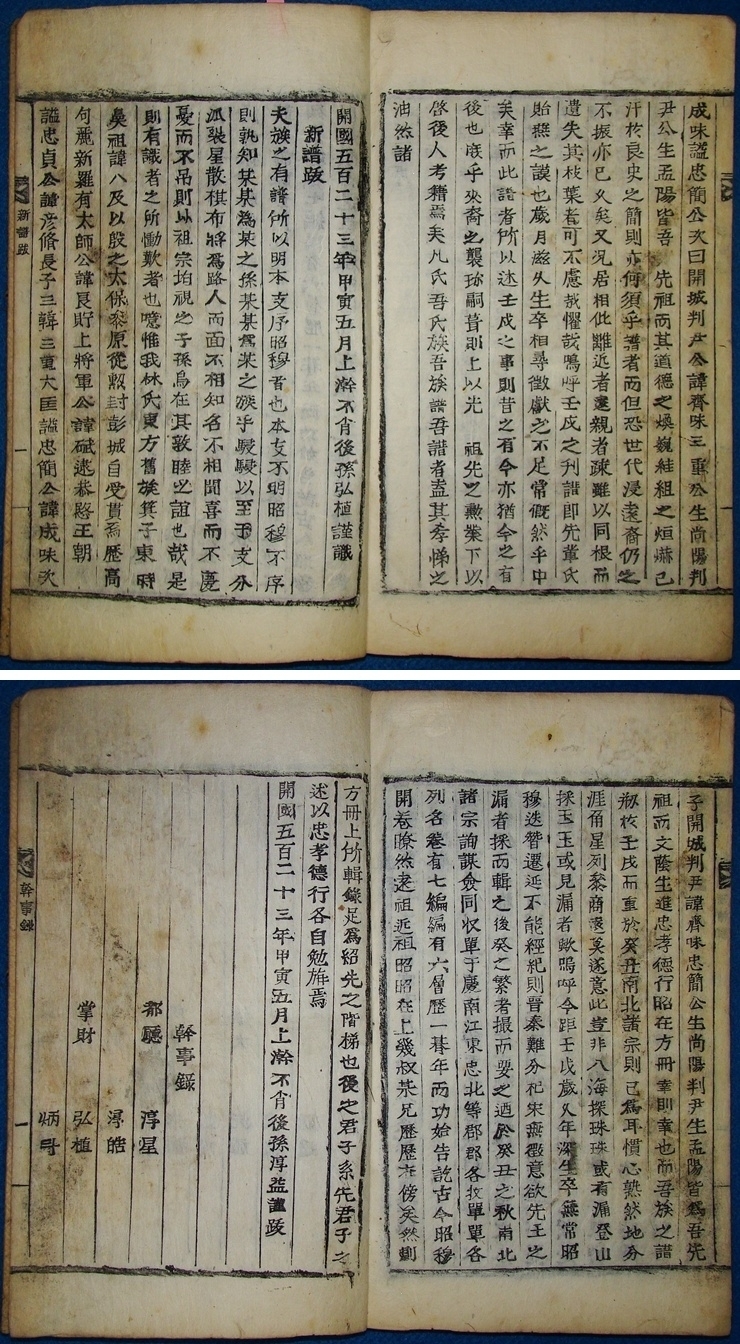 成味謚忠簡公次曰開城判尹公諱齊味三重公生尚陽判
尹公生孟陽皆吾 先祖而其道德之煥巍絓組之烜爀已
汗於良史之簡則亦何須乎譜者而但恐世代浸遠裔仍之
不振亦已久矣又況居相仳離近者遠親者疎雖以同根而
遺失其枝葉者可不慮哉懼哉嗚呼壬戌之刊譜即先輩氏
貽燕之謨也歲月滋久生卒相尋徵獻之不足常慨然乎中
矣幸而此譜者所以述壬戌之事則昔之有今亦猶今之有
後也庶乎來裔之襲珎嗣葺則上以光 祖先之勲業下以
啓後人考籍焉矣凡氏吾氏族吾族譜吾譜者盍其孝悌之
油然諸
開國五百二十三年甲寅五月上澣不肖後孫弘植謹識
新譜跋
夫族之有譜所以明本支序昭穆者也本支不明昭穆不序
則孰知某某為某之孫某某為某之族乎駸駸以至于支分
派裂星散棋布將為路人而面不相知名不相聞喜而不慶
憂而不吊則以祖宗均視之子孫烏在其敦睦之誼也哉是
則有識者之所慟歎者也噫惟我林氏東方舊族箕子東時
鼻祖諱八及以殷之太保黍原從勲封彭城自受貫焉歷高
句麗新羅有太師公諱良貯上將軍公諱碱逮恭路王朝
謚忠貞公諱彦脩長子三韓三重大匡謚忠簡公諱成味次
新譜跋
子開城判尹諱齊味忠簡公生尚陽判尹生孟陽皆為吾先
祖而文蔭生進忠孝德行昭在方冊幸則幸也而吾族之譜
刱於壬戌而重於癸丑南北諸宗則已為耳慣心熟然地分
涯角星列黎商還莫遂意此豈非八海探珠珠或有漏登山
採玉玉或見漏者歟嗚呼今距壬戌歲久年深生卒無常昭
穆迭替遷延不能經紀則晉秦難分杞宋無徵意欲先王之
漏者採而輯之後癸之繁者撮而要之廼於癸丑之秋南北
諸宗詢謀僉同收單于慶南江東忠北等郡郡各收單單各
列名卷有七編編有六層歷一朞年而功始告訖古今昭穆
開卷瞭然遠祖近祖昭昭在上幾叔某兄歷歷在傍矣然則
方冊上所輯錄足為紹先之階梯也後之君子系先君子之
述以忠孝德行各自勉旃焉
開國五百二十三年甲寅五月上澣不肖後孫淳益謹跋
幹事錄
都廳 淳星
淂皓
掌財 弘植
炳
幹事錄